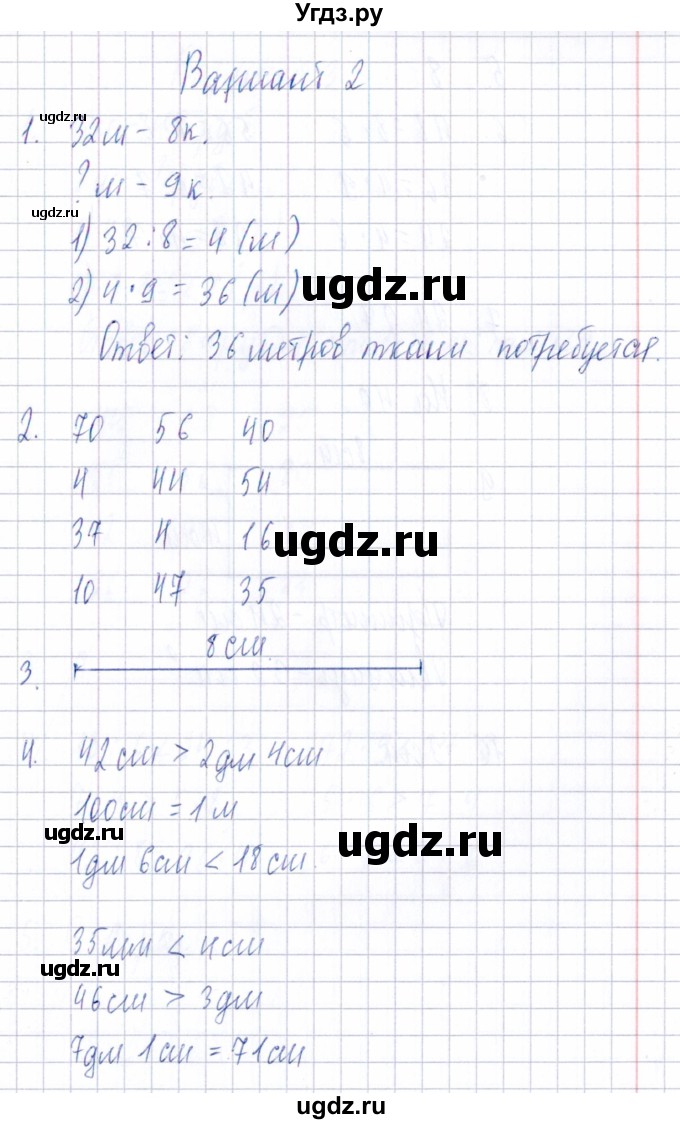 Угдз.ру
Вариант 2
1. 32м - 8к.
?м - 9к.
1) 32:8=4 (м)
2) 4·9=36 (м)
Ответ: 36 метров ткани потребуется.
2. 70 56 40
4 44 54
37 4 16
10 47 35
8см.
3.
4. 42см > 2дм 4см
100см = 1м
1дм 6см < 18см.
35мм < 4см
46см > 3дм
7дм 1см = 71см
ugdz.ru
ugdz.ru
ugdz.ru
ugdz.ru
ugdz.ru
ugdz.ru
ugdz.ru
ugdz.ru